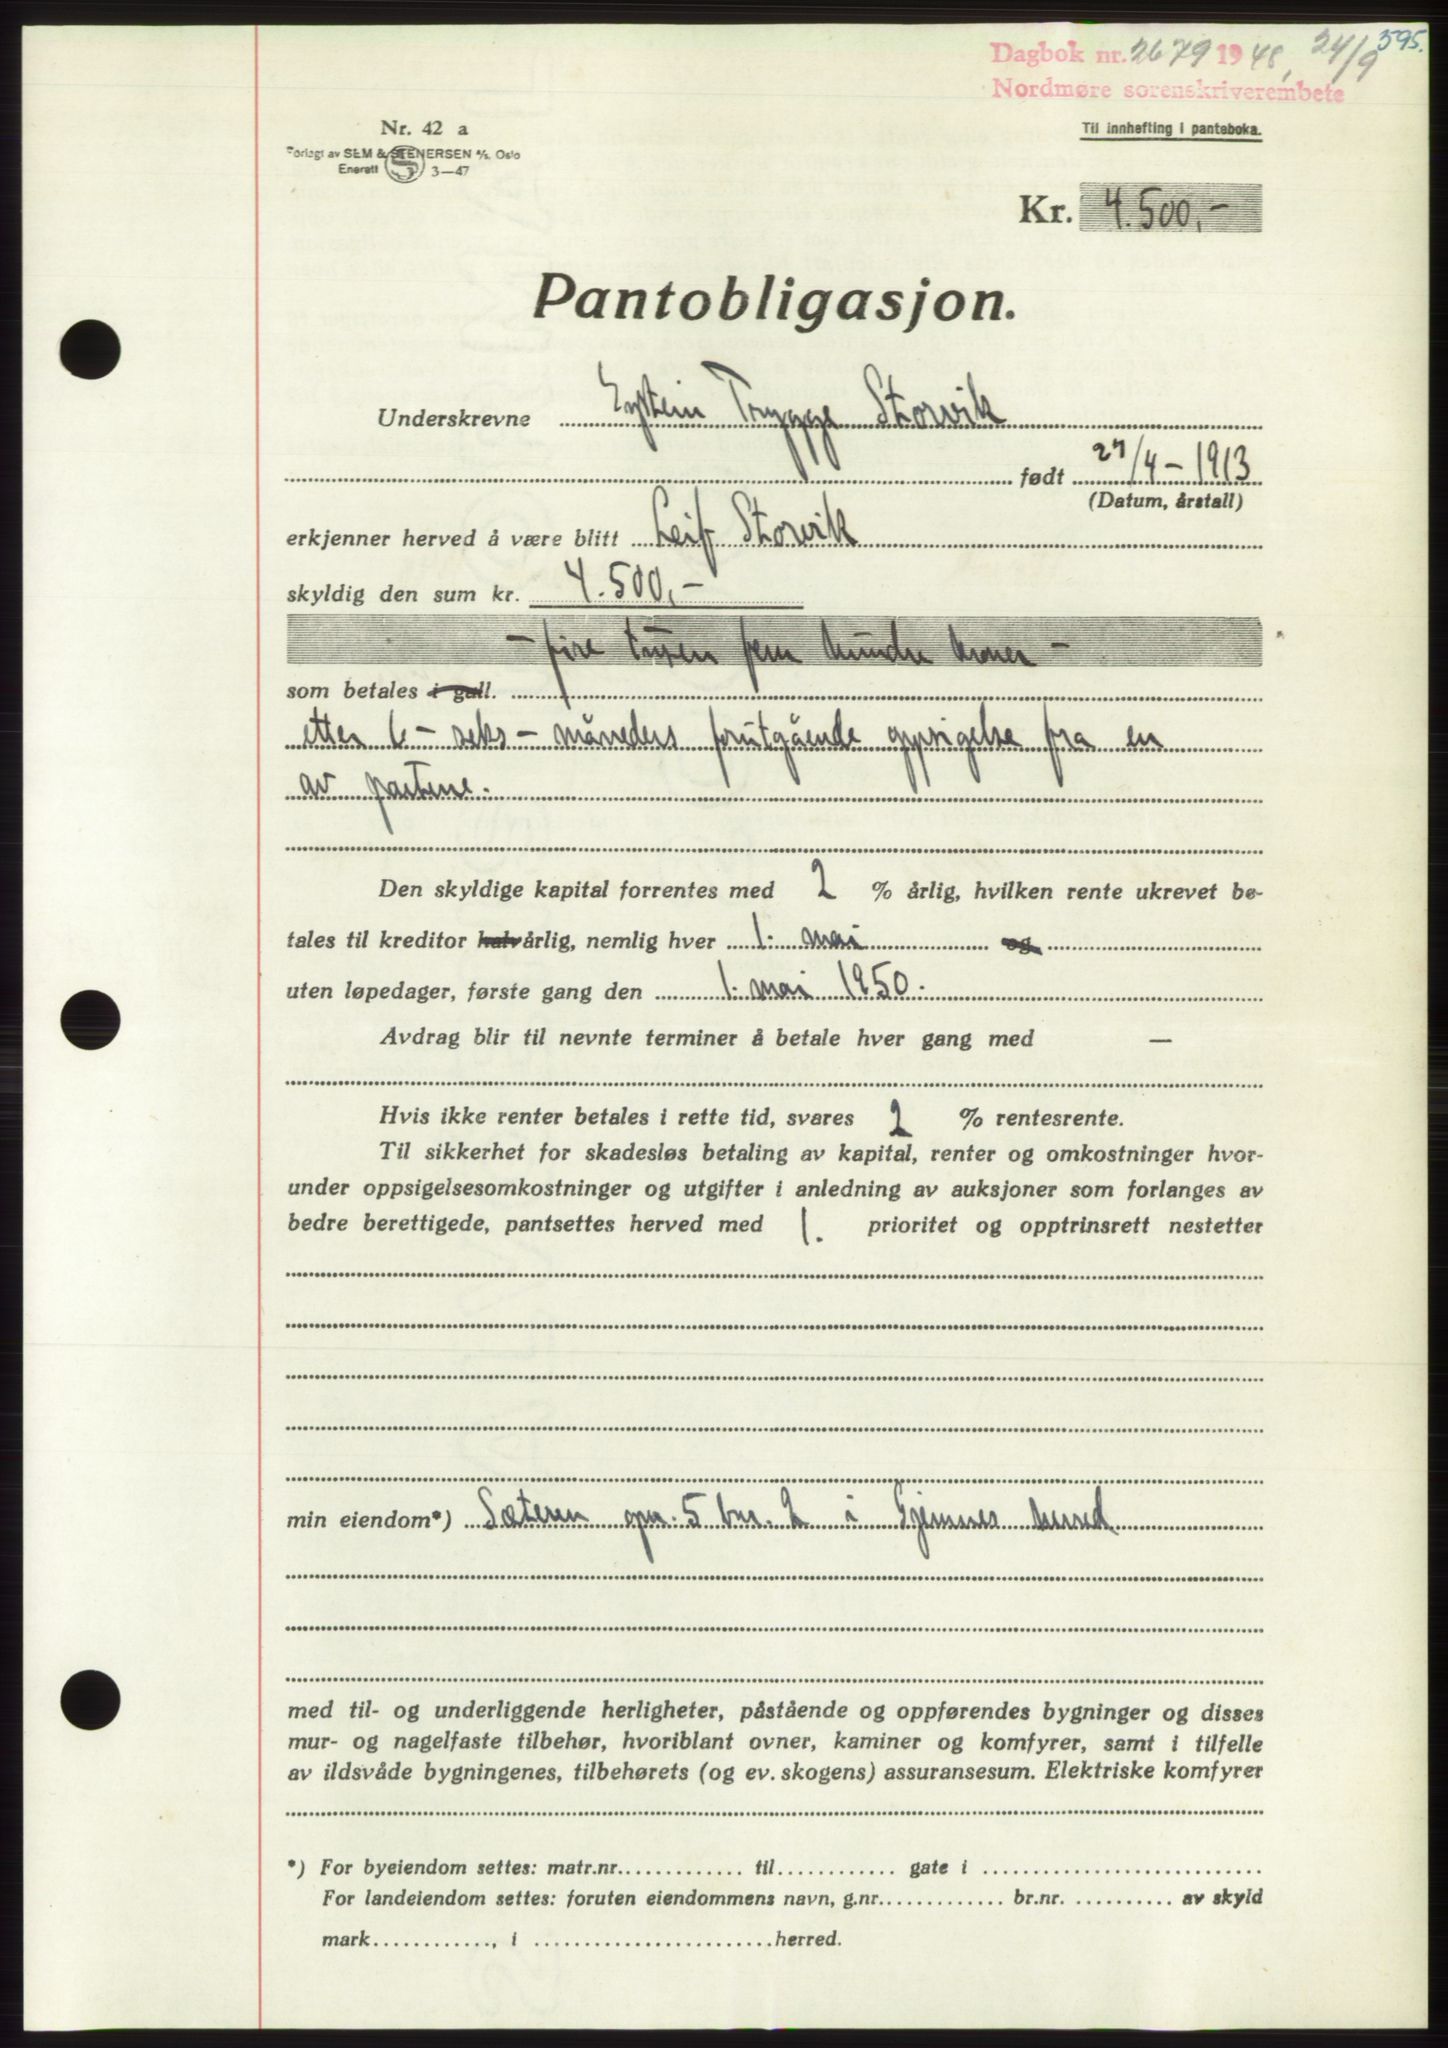 595.
Dagbok nr. 2679 1948, 24/9
Nordmøre sorenskriverembete
Nr. 42 a
Til innhefting i panteboka.
Forlagt av SEM & STENERSEN A/S. Oslo
Enerett S 3—47
Kr. 4.500,-
Pantobligasjon.
Underskrevne Eystein Trygge Storvik
født 27/4 - 1913
(Datum, årstall)
erkjenner herved å være blitt Leif Storvik
skyldig den sum kr. 4.500,-
- fire tusen fem hundre kroner -
som betales i gull.
etter 6 - seks - måneders forutgående oppsigelse fra en
av partene.
Den skyldige kapital forrentes med 2 % årlig, hvilken rente ukrevet be-
tales til kreditor halvårlig, nemlig hver 1. mai og
uten løpedager, første gang den 1. mai 1950.
Avdrag blir til nevnte terminer å betale hver gang med —
Hvis ikke renter betales i rette tid, svares 2 % rentesrente.
Til sikkerhet for skadesløs betaling av kapital, renter og omkostninger hvor-
under oppsigelsesomkostninger og utgifter i anledning av auksjoner som forlanges av
bedre berettigede, pantsettes herved med 1. prioritet og opptrinsrett nestetter
min eiendom*) Sæteren gnr. 5 bnr. 2 i Gjemnes herred
med til- og underliggende herligheter, påstående og oppførendes bygninger og disses
mur- og nagelfaste tilbehør, hvoriblant ovner, kaminer og komfyrer, samt i tilfelle
av ildsvåde bygningenes, tilbehørets (og ev. skogens) assuransesum. Elektriske komfyrer
*) For byeiendom settes: matr.nr. ............ til ............ gate i ............
For landeiendom settes: foruten eiendommens navn, g.nr. ............ br.nr. .......... av skyld
mark ............, i ........................ herred.